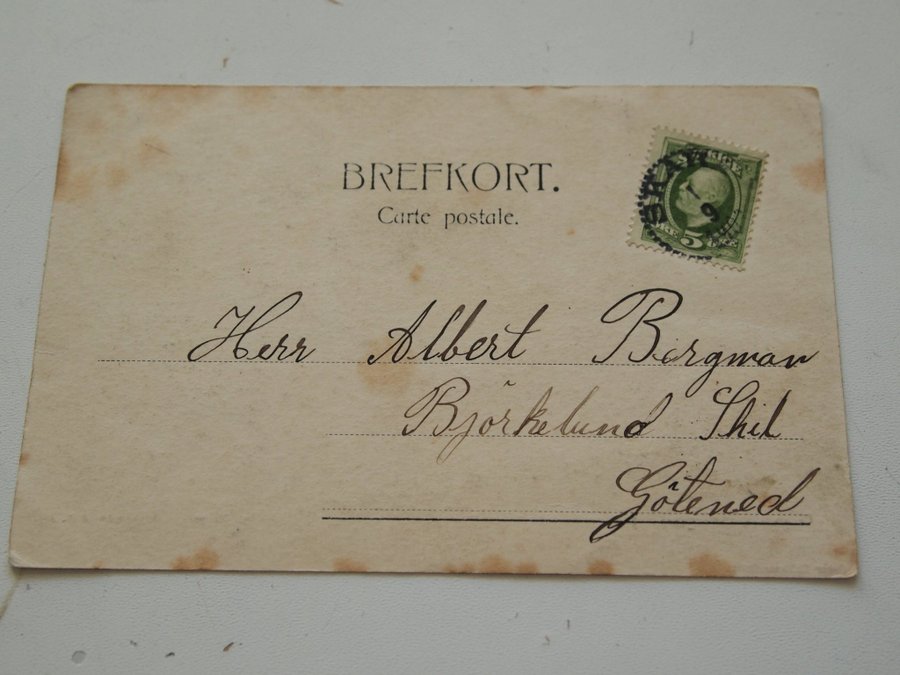 BREFKORT.
Carte postale.
5
Herr Albert Bergman
Björkelund Skil
Götened